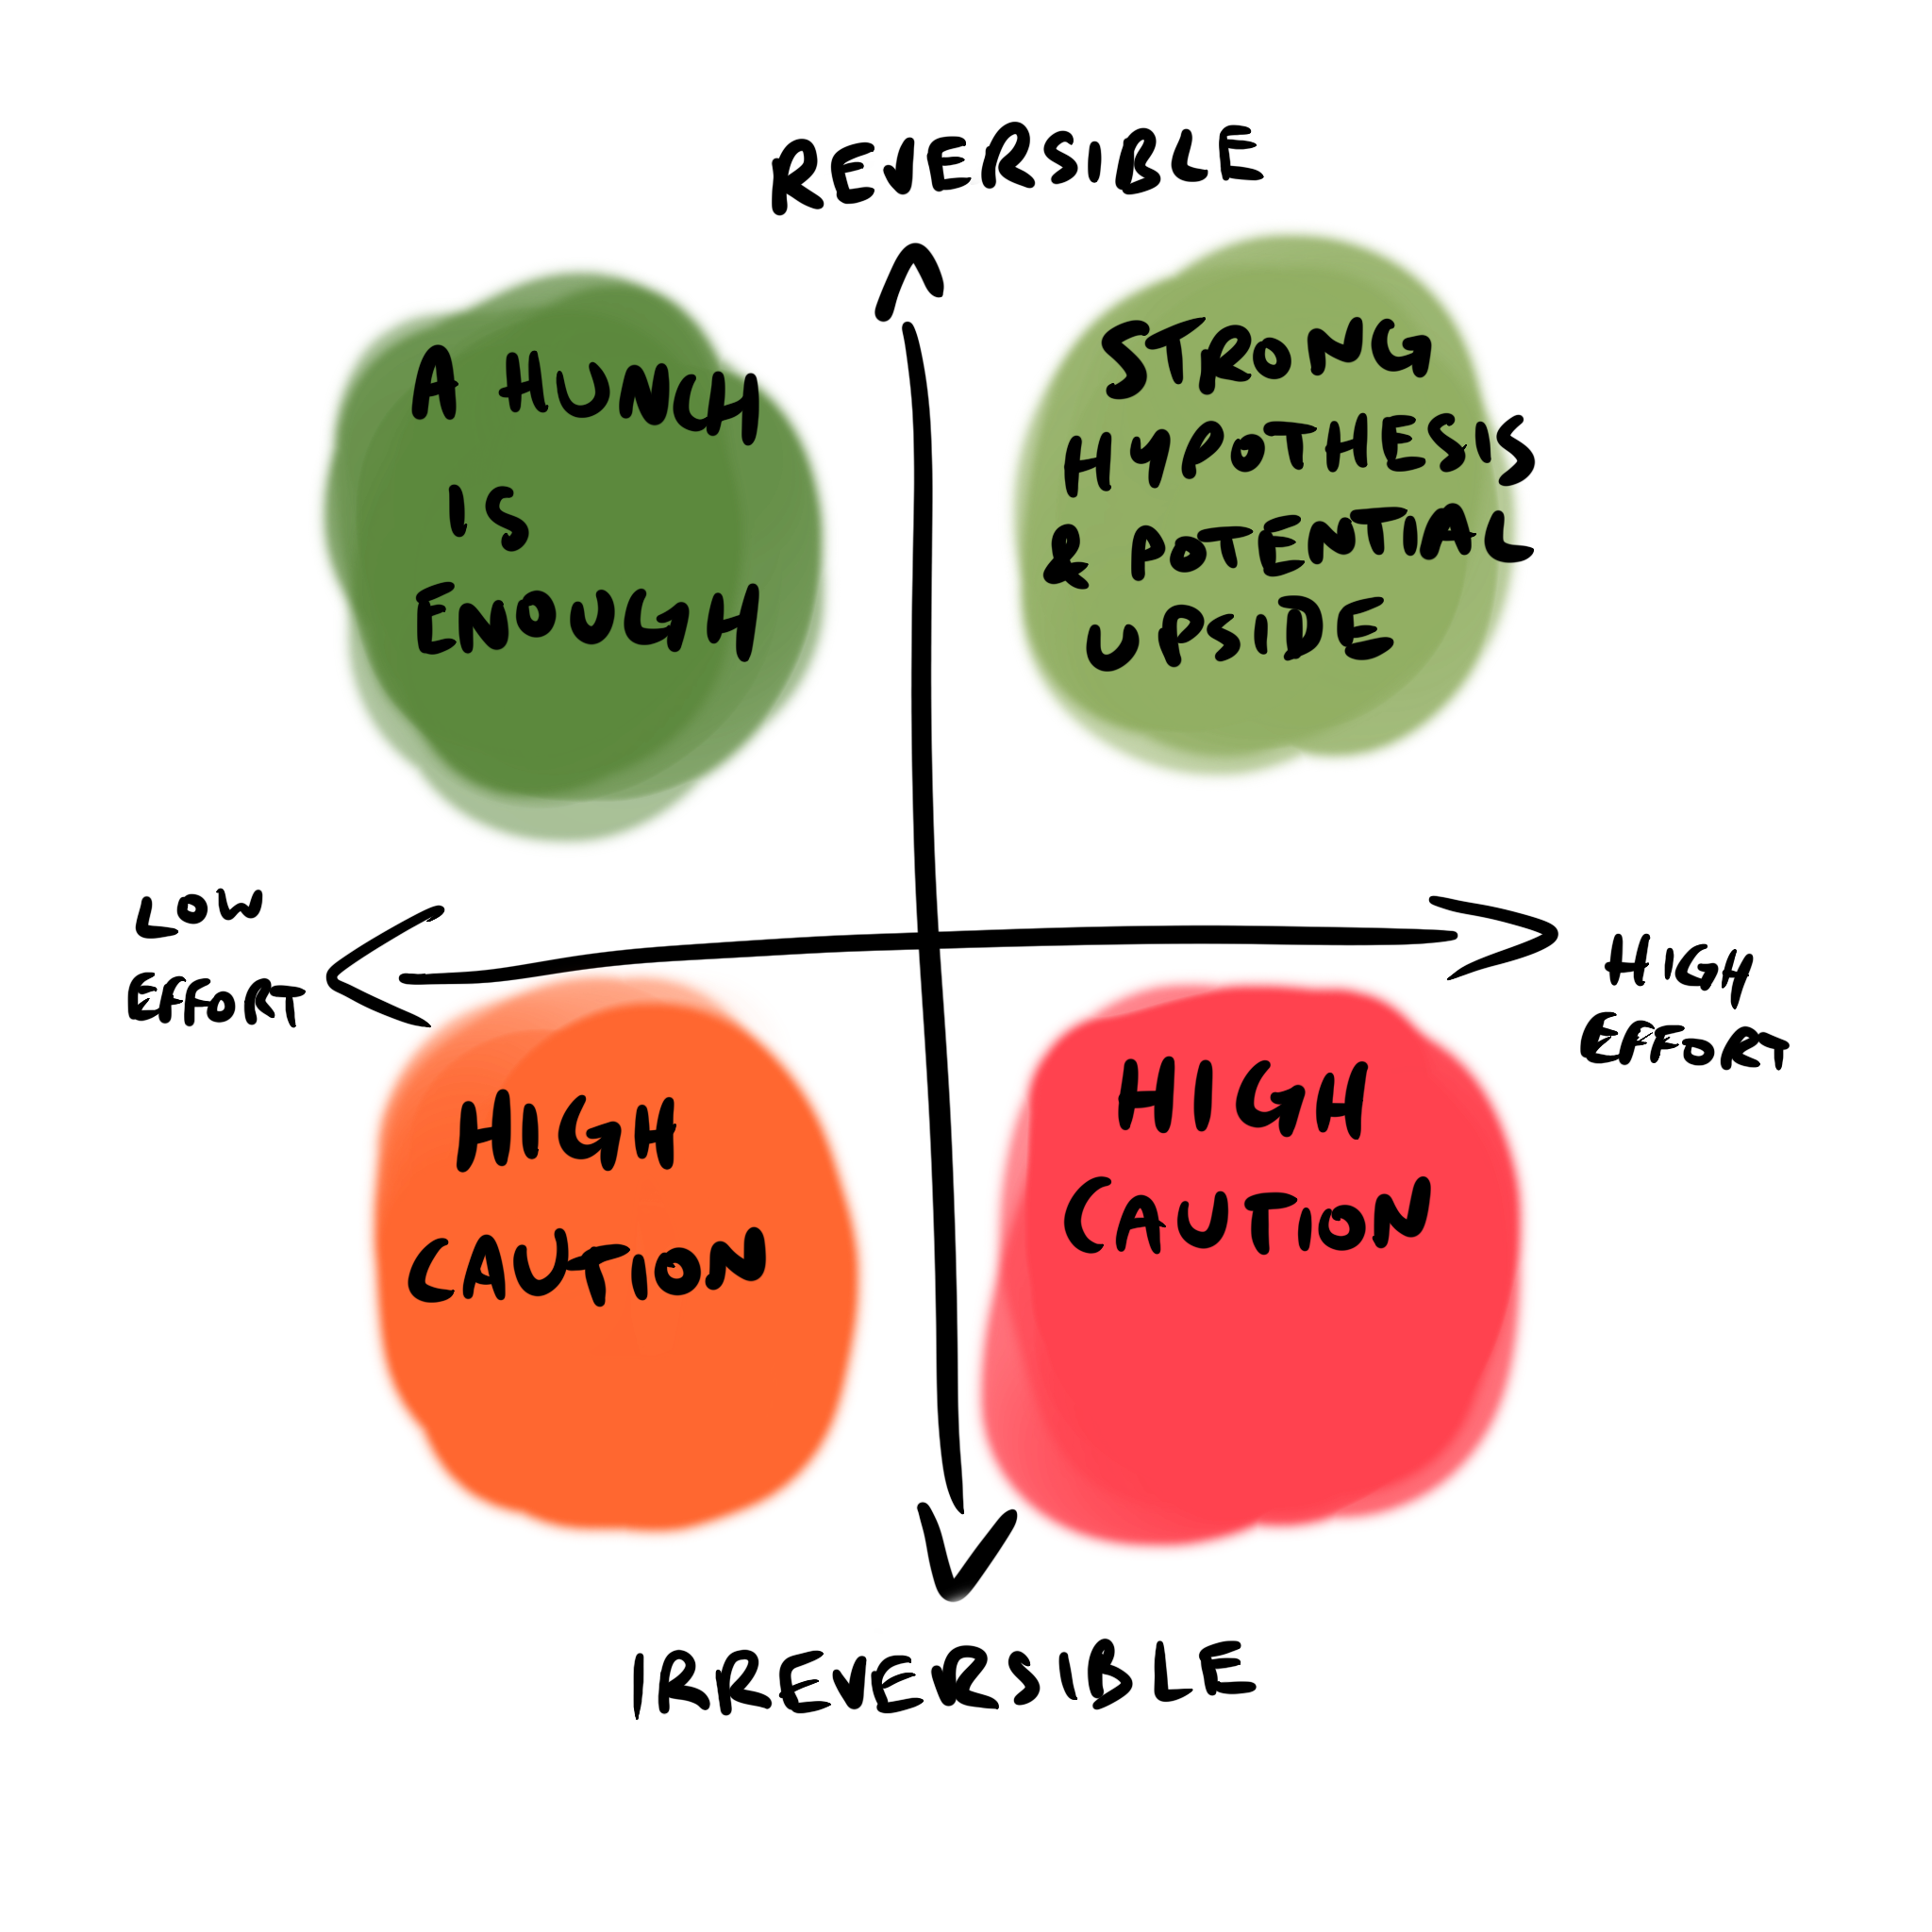 REVERSIBLE
A HUNCH
IS
ENOUGH
STRONG
HYPOTHESIS
& POTENTIAL
UPSIDE
LOW
EFFORT
HIGH
EFFORT
HIGH
CAUTION
HIGH
CAUTION
IRREVERSIBLE